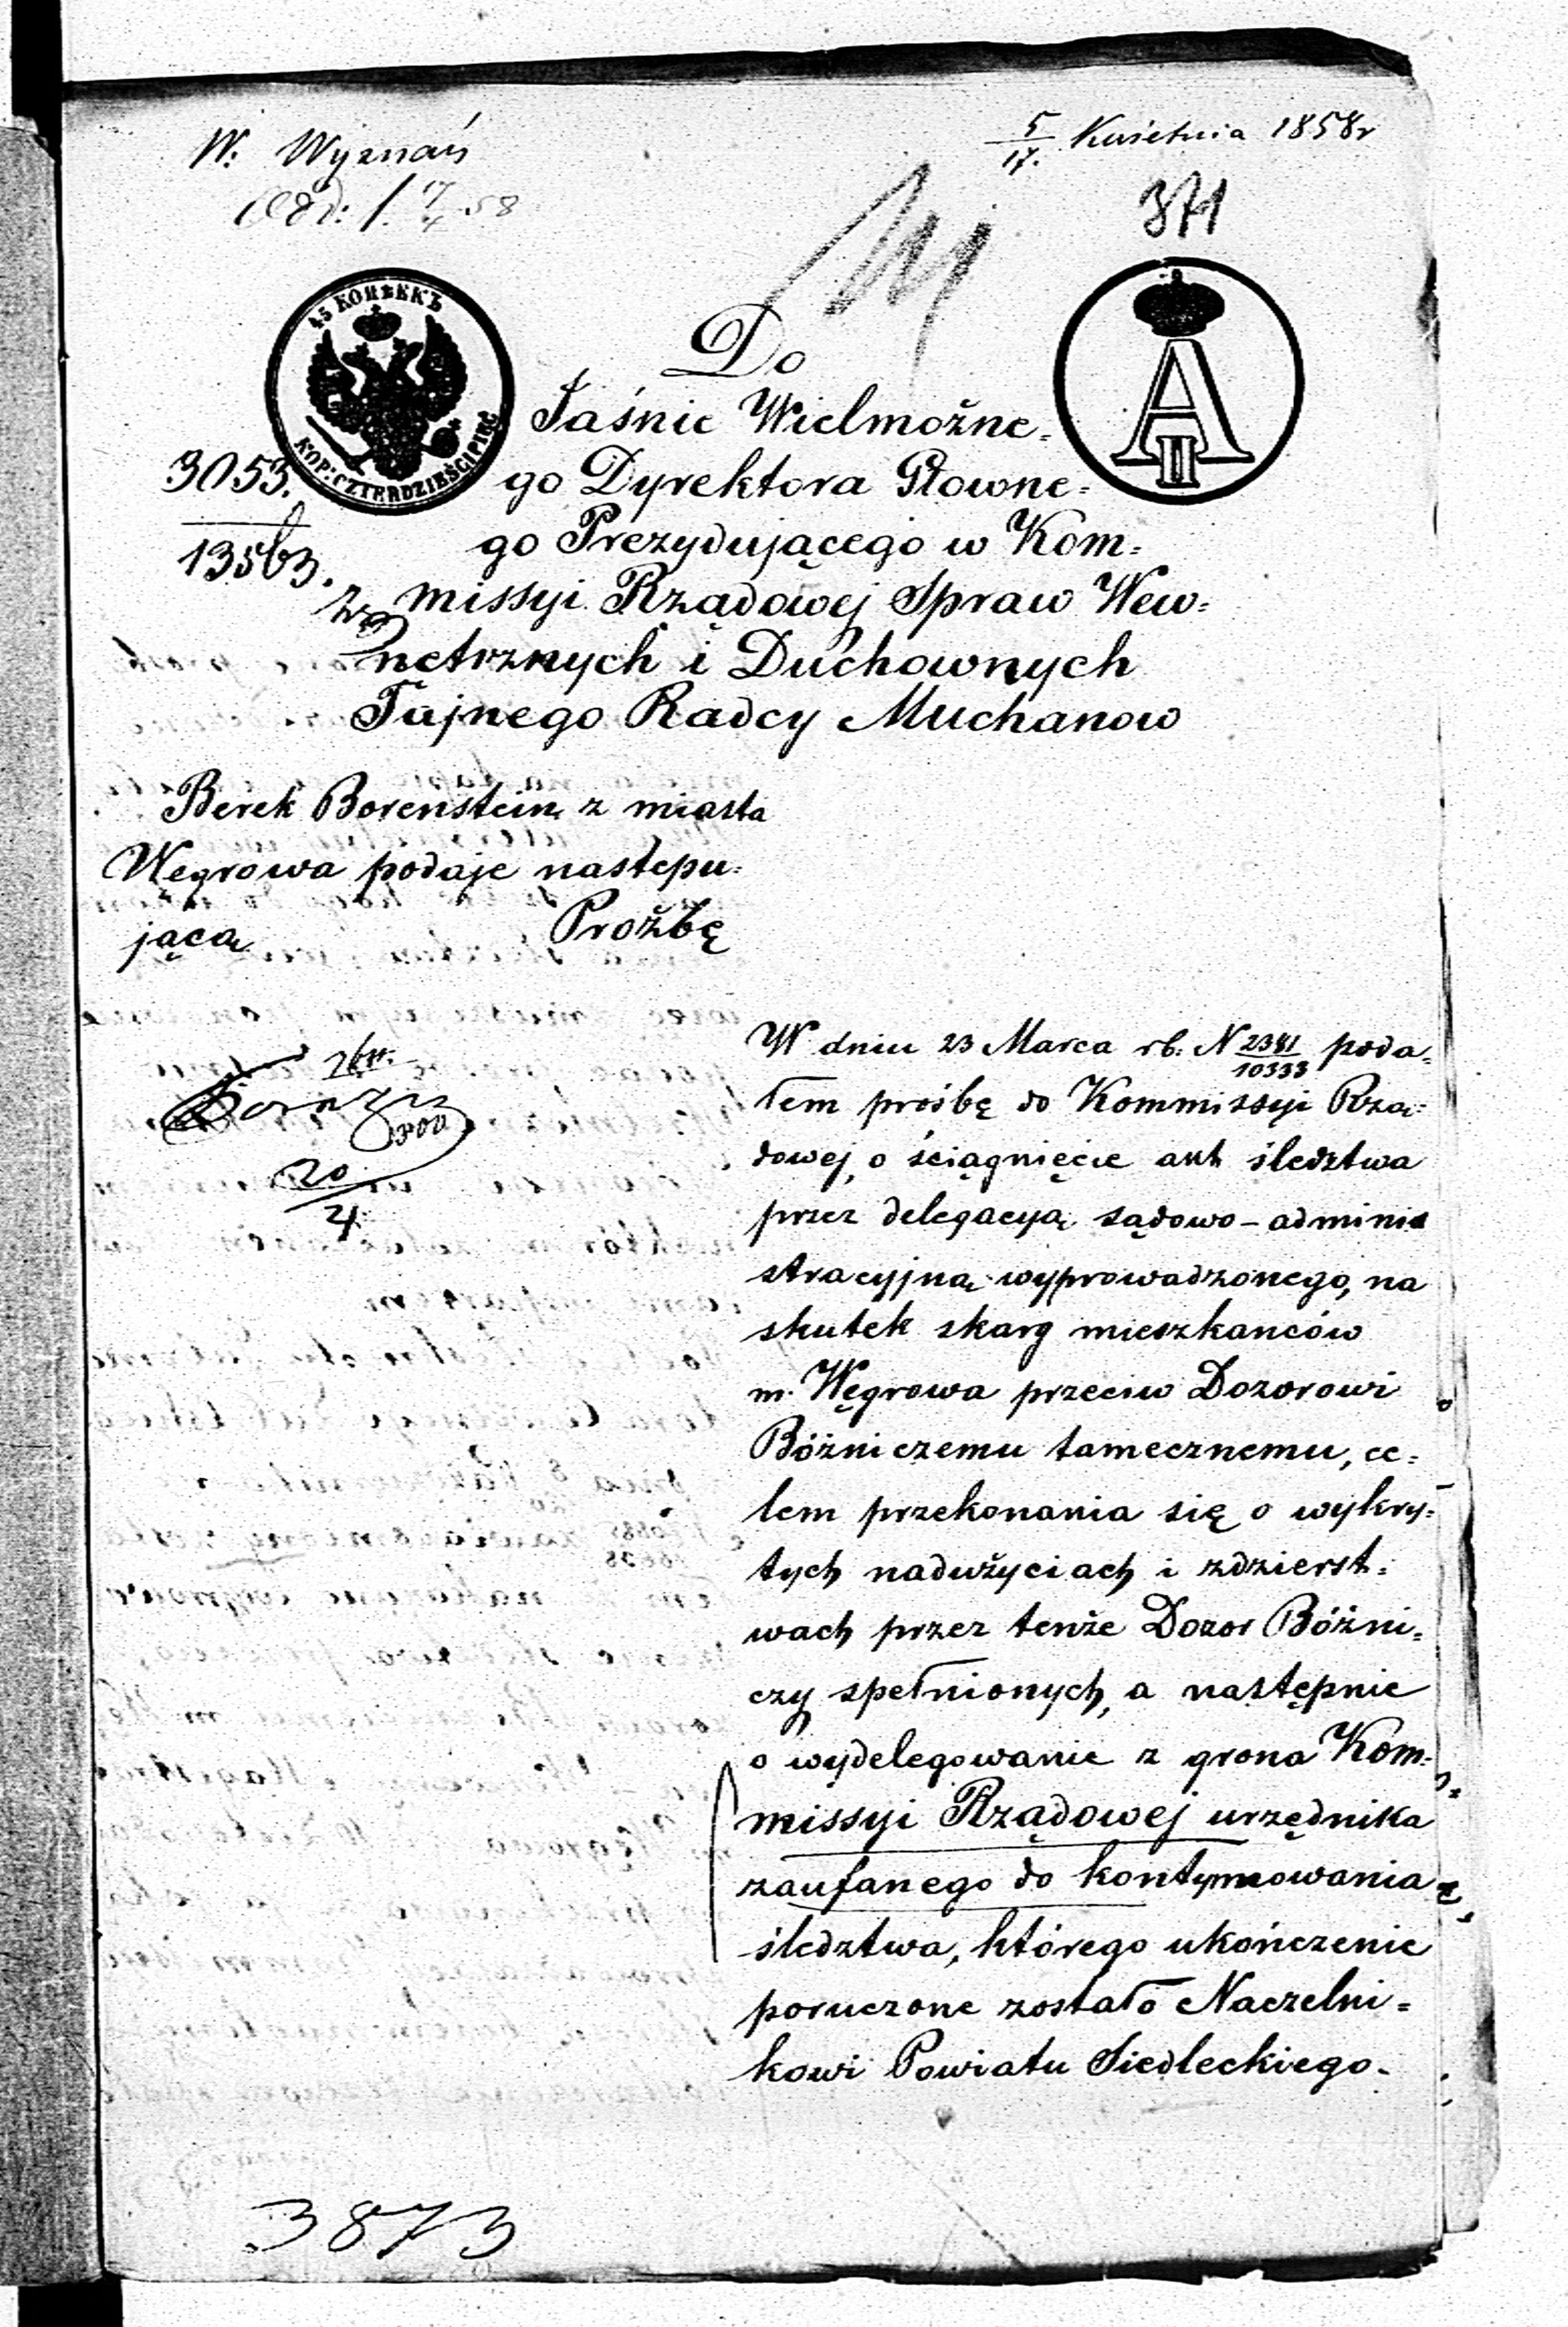 W: Wyznań
5/17. Kwietnia 1858r
17/4 58
371
45 КОПѢЕКЪ
KOP: CZTERDZIEŚCI PIĘĆ
A II
Do
Jaśnie Wielmożne=
go Dyrektora Głowne=
go Prezydującego w Kom=
missyi Rządowej Spraw Wew=
netrznych i Duchownych
Tajnego Radcy Muchanow
3053.
13563.
Berek Borenstein z miasta
Węgrowa podaje następu=
jącą Prożbę
20/4
W dniu 23 Marca rb: N 2381/10333 poda=
łem prośbę do Kommissyi Rzą=
dowej, o ściągnięcie akt śledztwa
przez delegacyą sądowo-admini
stracyjną wyprowadzonego, na
skutek skarg mieszkanców
m. Węgrowa przeciw Dozorowi
Bóżniczemu tamecznemu, ce=
lem przekonania się o wykry=
tych nadużyciach i zdzierst=
wach przez tenże Dozor Bóżni=
czy spełnionych, a następnie
o wydelegowanie z grona Kom=
missyi Rządowej urzędnika
zaufanego do kontynuowania
śledztwa, którego ukończenie
poruczone zostało Naczelni=
kowi Powiatu Siedleckiego.
3873